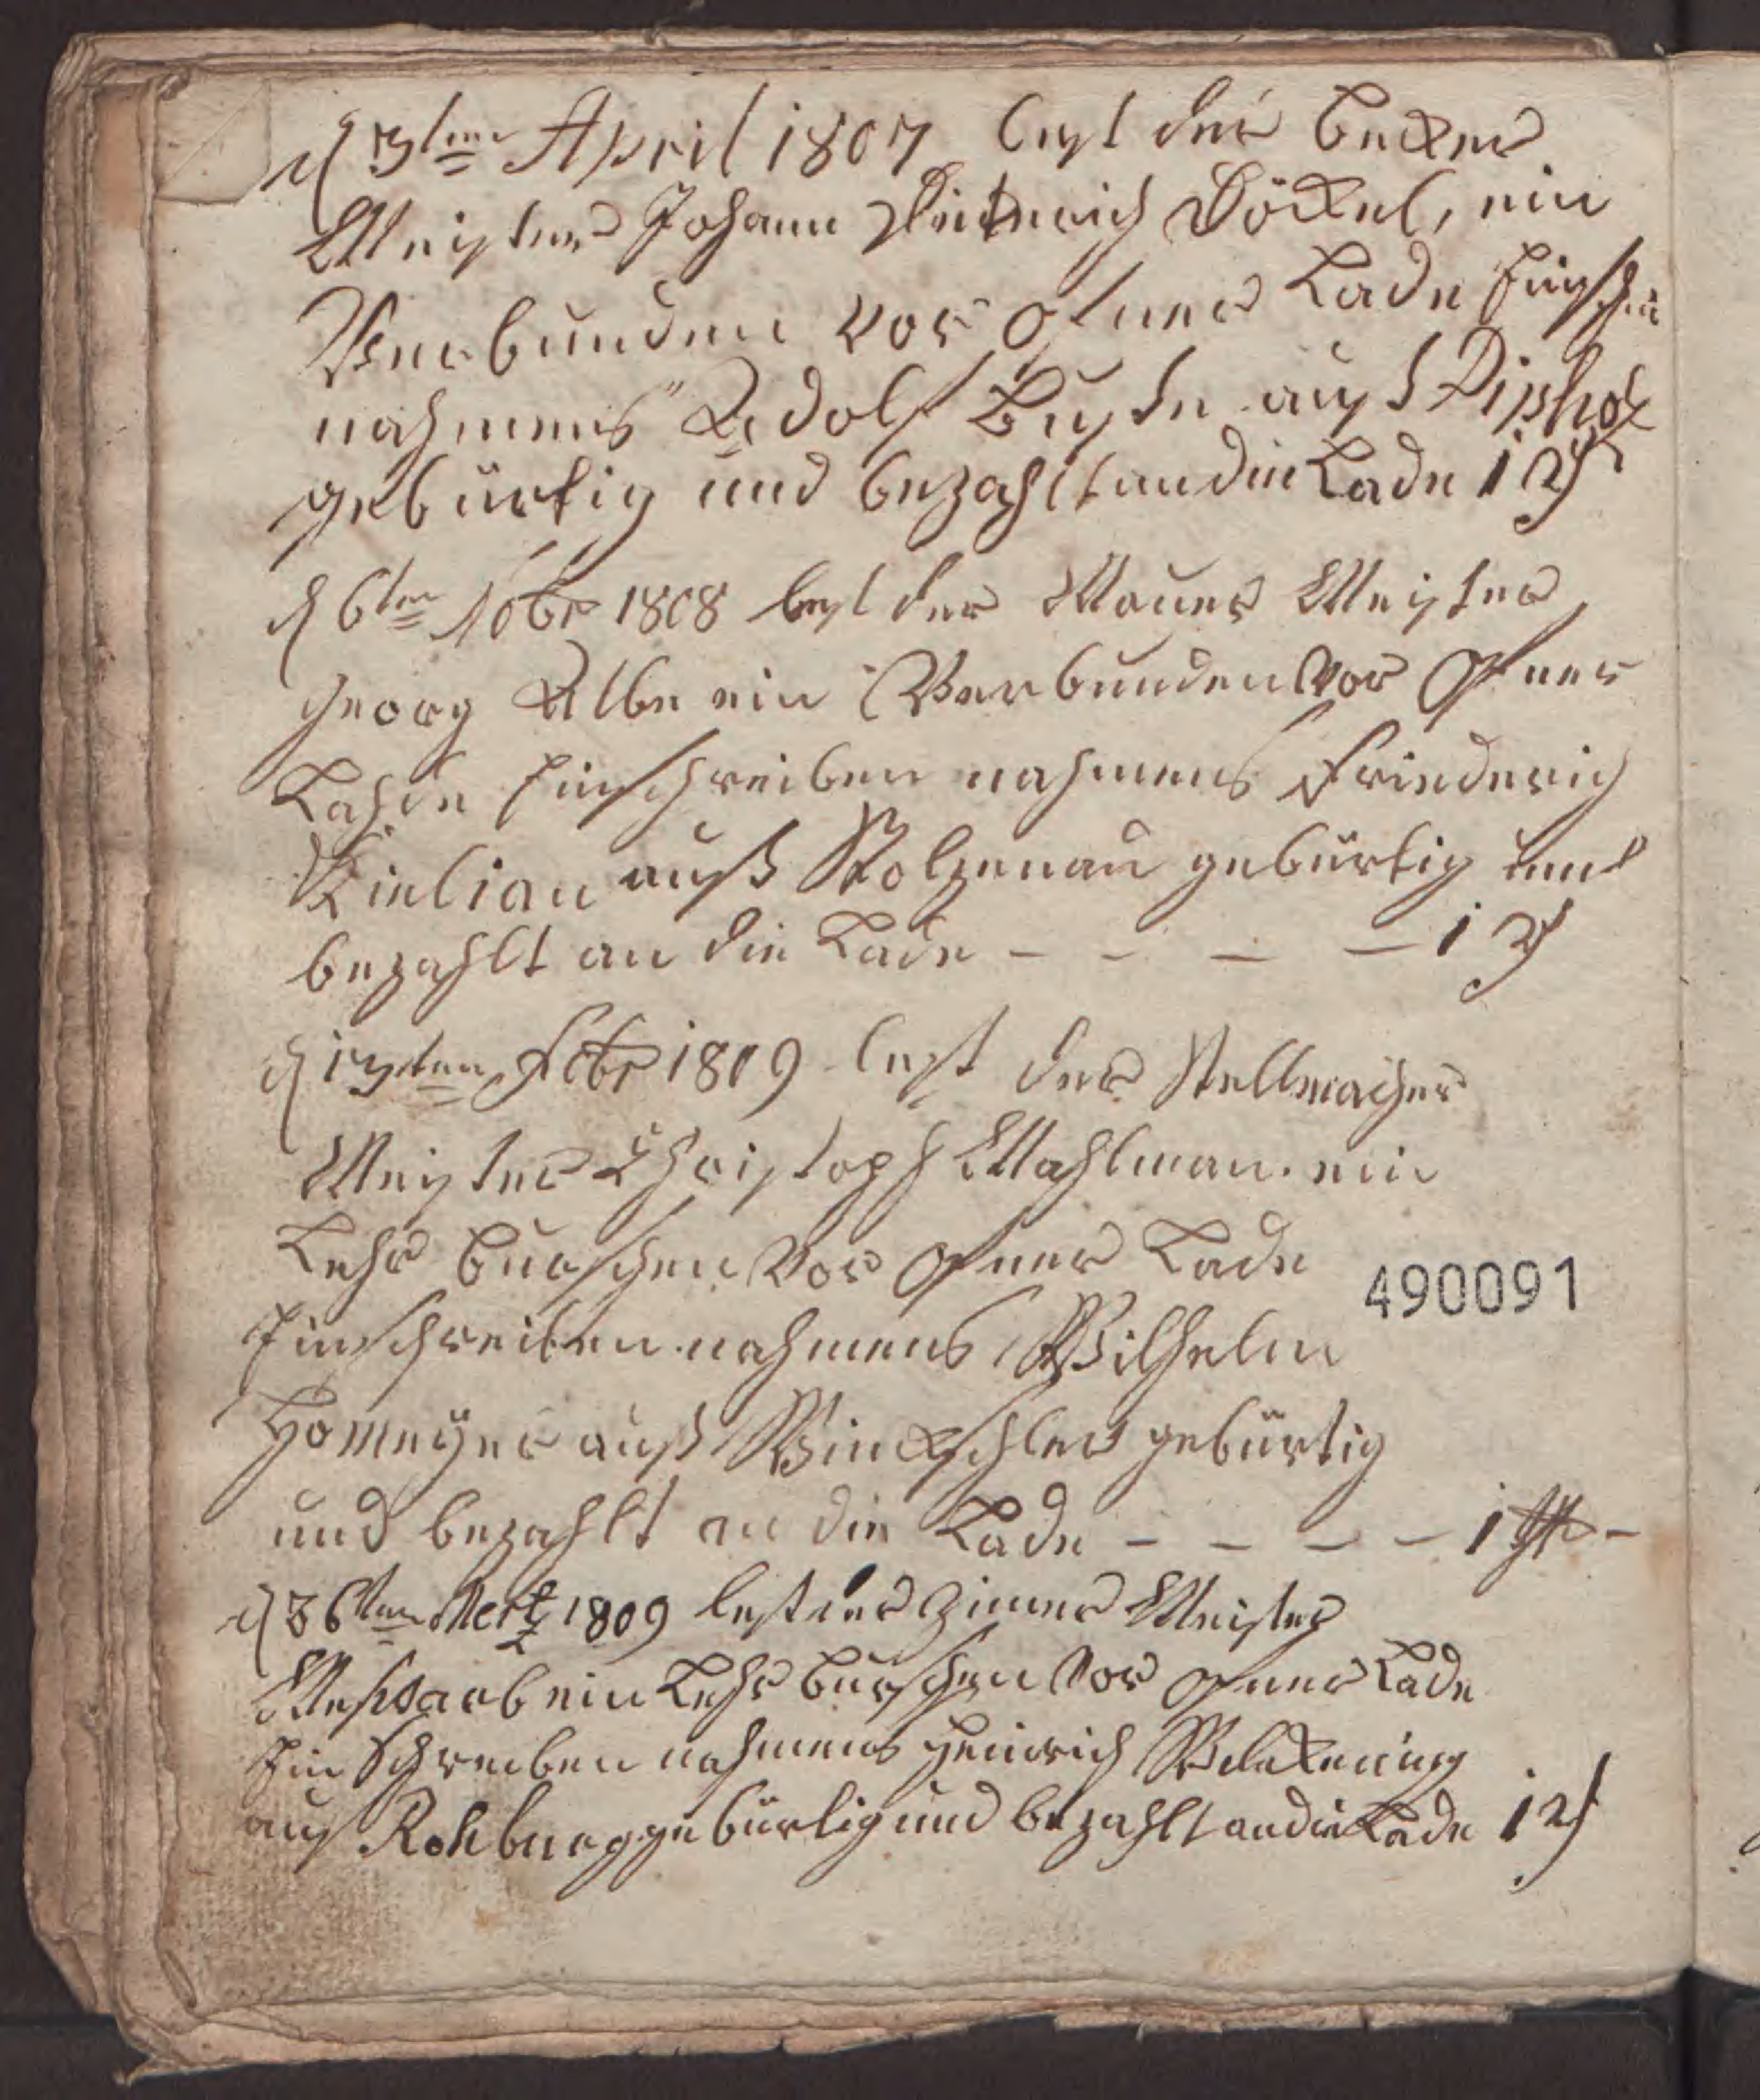 d 3ten April 1807 lest der Becker
Meister Johann Dieterich Döckel, ein
Verbunden vor ofner Lade Einschr
nahmens Adolf Buste aus Dipholz
gebürtig und bezahlt an die Lade 1 rf
d 6ten Nobr 1808 lest der Mauer Meister
Georg Albe ein Verbunden vor ofner
Lahde Einschreiben nahmens Friederich
Kielian auß Stolzenau gebürtig und
bezahlt an die Lade - - - - 1 rf
d 13ten Febr 1809 lest der Stellmacher
Meister Christoph Mahlman. ein
Lehr Burschen vor ofner Lade
Einschreiben nahmens Wilhelm
Homeÿer auß Winzschler gebürtig
und bezahlt an die Lade - - - - 1 rth -
d 26ten Mertz 1809 lest der Zimer Meister
ein Lehr Burschen vor ofner Lade
Ein Schreiben nahmens Heinrich
aus Rehburg gebürtig und bezahlt an die Lade 1 rf
490091